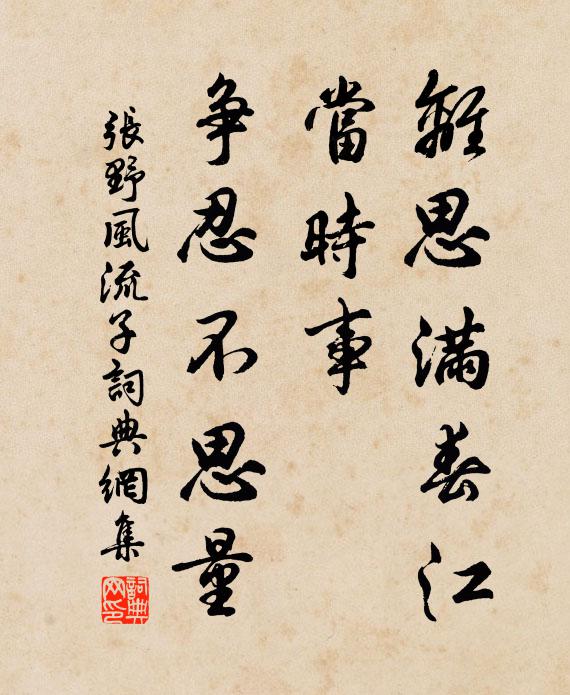 離思滿春江
當時事
争忍不思量
張野風流子詞典網集
詞典網印